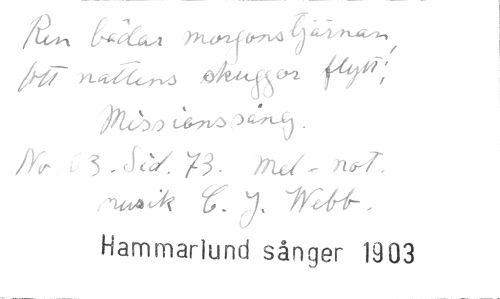 Ren bådar morgonstjärnan,
att nattens skuggor flytt;
Missionssång.
No. 63. Sid. 73. mel - not.
musik C. J. Webb.
Hammarlund sånger 1903